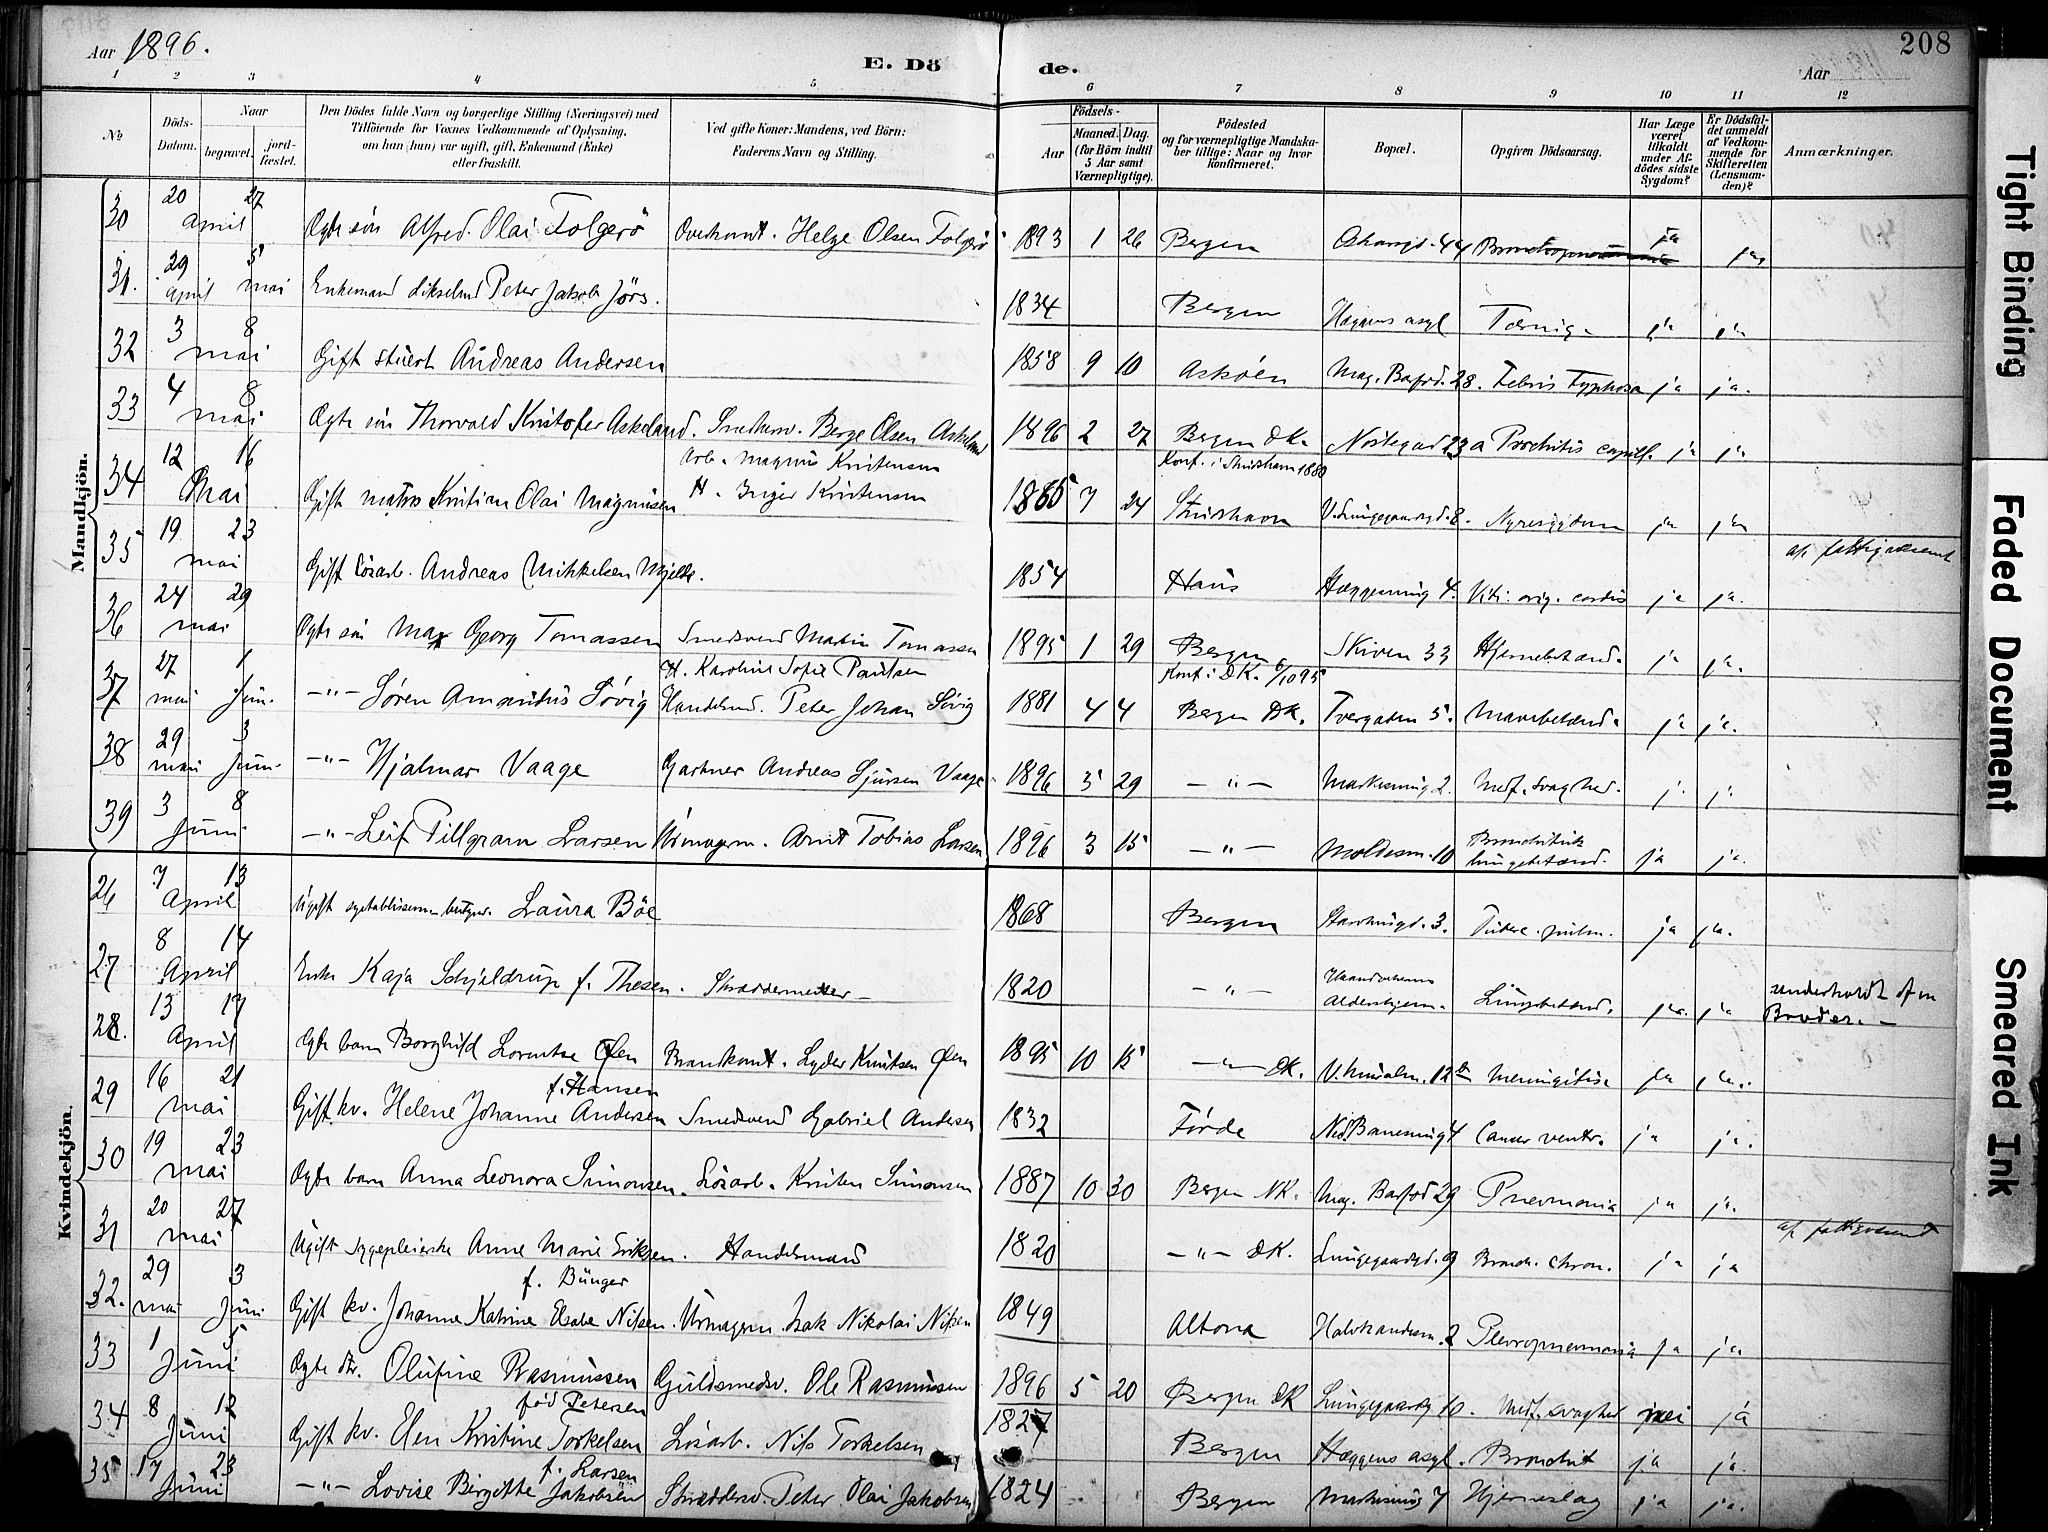 Aar 1896.
E. Dö
de.
Aar
208
1 2 3 4 5 6 7 8 9 10 11 12
No
Döds-Datum.
Naar
begravet.
jord-fæstet.
Den Dödes fulde Navn og borgerlige Stilling (Næringsvei) med
Tilföiende for Voxnes Vedkommende af Oplysning,
om han (hun) var ugift, gift, Enkemand (Enke)
eller fraskilt.
Ved gifte Koner: Mandens, ved Börn:
Faderens Navn og Stilling.
Födsels-
Aar
Maaned. Dag.
(for Börn indtil
5 Aar samt
Værnepligtige).
Födested
og for værnepligtige Mandska-
ber tillige: Naar og hvor
konfirmeret.
Bopæl.
Opgiven Dödsaarsag.
Har Læge
været
tilkaldt
under Af-
dödes sidste
Sygdom?
Er Dödsfal-
det anmeldt
af Vedkom-
mende for
Skifteretten
(Lensman-
den)?
Anmærkninger.
Mandkjön.
30 20 april 27 Ægte sön Alfred Olai Folgerö Helge Olsen Folgerö 1893 1 26 Bergen 44 ja ja
31. 29 april 5 mai Enkemand Peter Jakob Jörs. 1834 Bergen Hæggens asyl Tæring ja ja
32 3 8 mai Gift stuert Andreas Andersen 1858 9 10 Askøen Mag. Barfod. 28. Febris Typhosa ja ja.
33 4 8 mai Ægte sön Thorvald Kristofer Askeland. Berge Olsen Askeland 1896 2 27 Bergen DK. Nostegad 23 a ja ja
Arb. Magnus Kristensen Konf. i Strusham 1880
34 12 16 Mai Gift matros Kristian Olai Magnusen H. Inger Kristensen 1865 7 24 Strusham V. Lungegaardsgd. 8. Nyresygdom ja ja
35 19 23 mai Gift Lösarb. Andreas Mikkelsen Mjelde. 1854 Haus Hæggesmug 4. Viti. org. cordis ja ja. af fattigvæsenet
36 24 29 mai Ægte sön Max Georg Tomassen Smedsvend Martin Tomassen 1895 1 29 Bergen Skiven 33 Hjernebetænd. ja ja.
H. Karoline Sofie Paulsen Konf. i DK. 6/10 95
37 27 mai 1 Juni —"— Sören Amandus Sövig Handelsmd. Peter Johan Sövig 1881 4 4 Bergen DK. Tvergaden 5. Mavebetænd. ja ja.
38 29 mai 3 Juni —"— Hjalmar Vaage Gartner Andreas Sjursen Vaage 1896 3 29 —"— 2. Medf. svaghed. ja ja
39 3 8 Juni —"— Leif Pillgram Larsen Urmagerm. Arnt Tobias Larsen 1896 3 15 —"— Moldesm. 10 Lungebetænd. ja ja.
Kvindekjön.
26 7 13 April Ugift Laura Böe 1868 Bergen 3. Tuberc. pulm. ja ja.
27 8 14 April Enke Kaja Schjeldrup f. Thesen. Skræddermester 1820 —"— Alderhjem. Lungebetænd. ja. ja underholdt af en Broder. —
28. 13 17 April Ægte barn Borghild Lorentse Øen Brandkonst. Lyder Knutsen Øen 1895 10 15 —"— DK. V. Muralm. 12 b Meningitis. ja ja.
29 16 21 mai Gift kv. Helene Johanne Andersen f. Hansen Smedsvend Gabriel Andersen 1832 Förde Ned. Banesmug 4 Cancer ventr. ja ja.
30 19 23 mai Ægte barn Anna Leonora Simonsen. Lösarb. Kristen Simonsen 1887 10 30 Bergen NK. Mag. Barfod 29 Pnevmonia ja ja.
31 20 27 mai Ugift sygepleierske Anne Marie Eriksen. Handelsmand 1820 —"— DK. Lungegaardsgd. 9 Bronch. chron. ja ja af fattigvæsenet
32. 29 mai 3 Juni Gift kv. Johanne Katrine Elsabe Nilsen f. Bünger Urmagerm. Isak Nikolai Nilsen 1849 Altona 2 Plevropnevmonia ja ja
33 1 5 Juni Ægte dtr. Olufine Rasmussen Guldsmedsv. Ole Rasmussen 1896 5 20 Bergen DK Lungegaardsg 10. Medf. svaghed nei ja
34 8 12 Juni Gift kv. Elen Kristine Torkelsen föd Petersen Lösarb. Nils Torkelsen 1827 Bergen Hæggens asyl. Bronchit ja ja.
35 17 23 Juni —"— Lovise Birgitte Jakobsen f. Larsen Skræddersv. Peter Olai Jakobsen 1824 Bergen 7 Hjerneslag ja ja.
Tight Binding
Faded Document
Smeared Ink